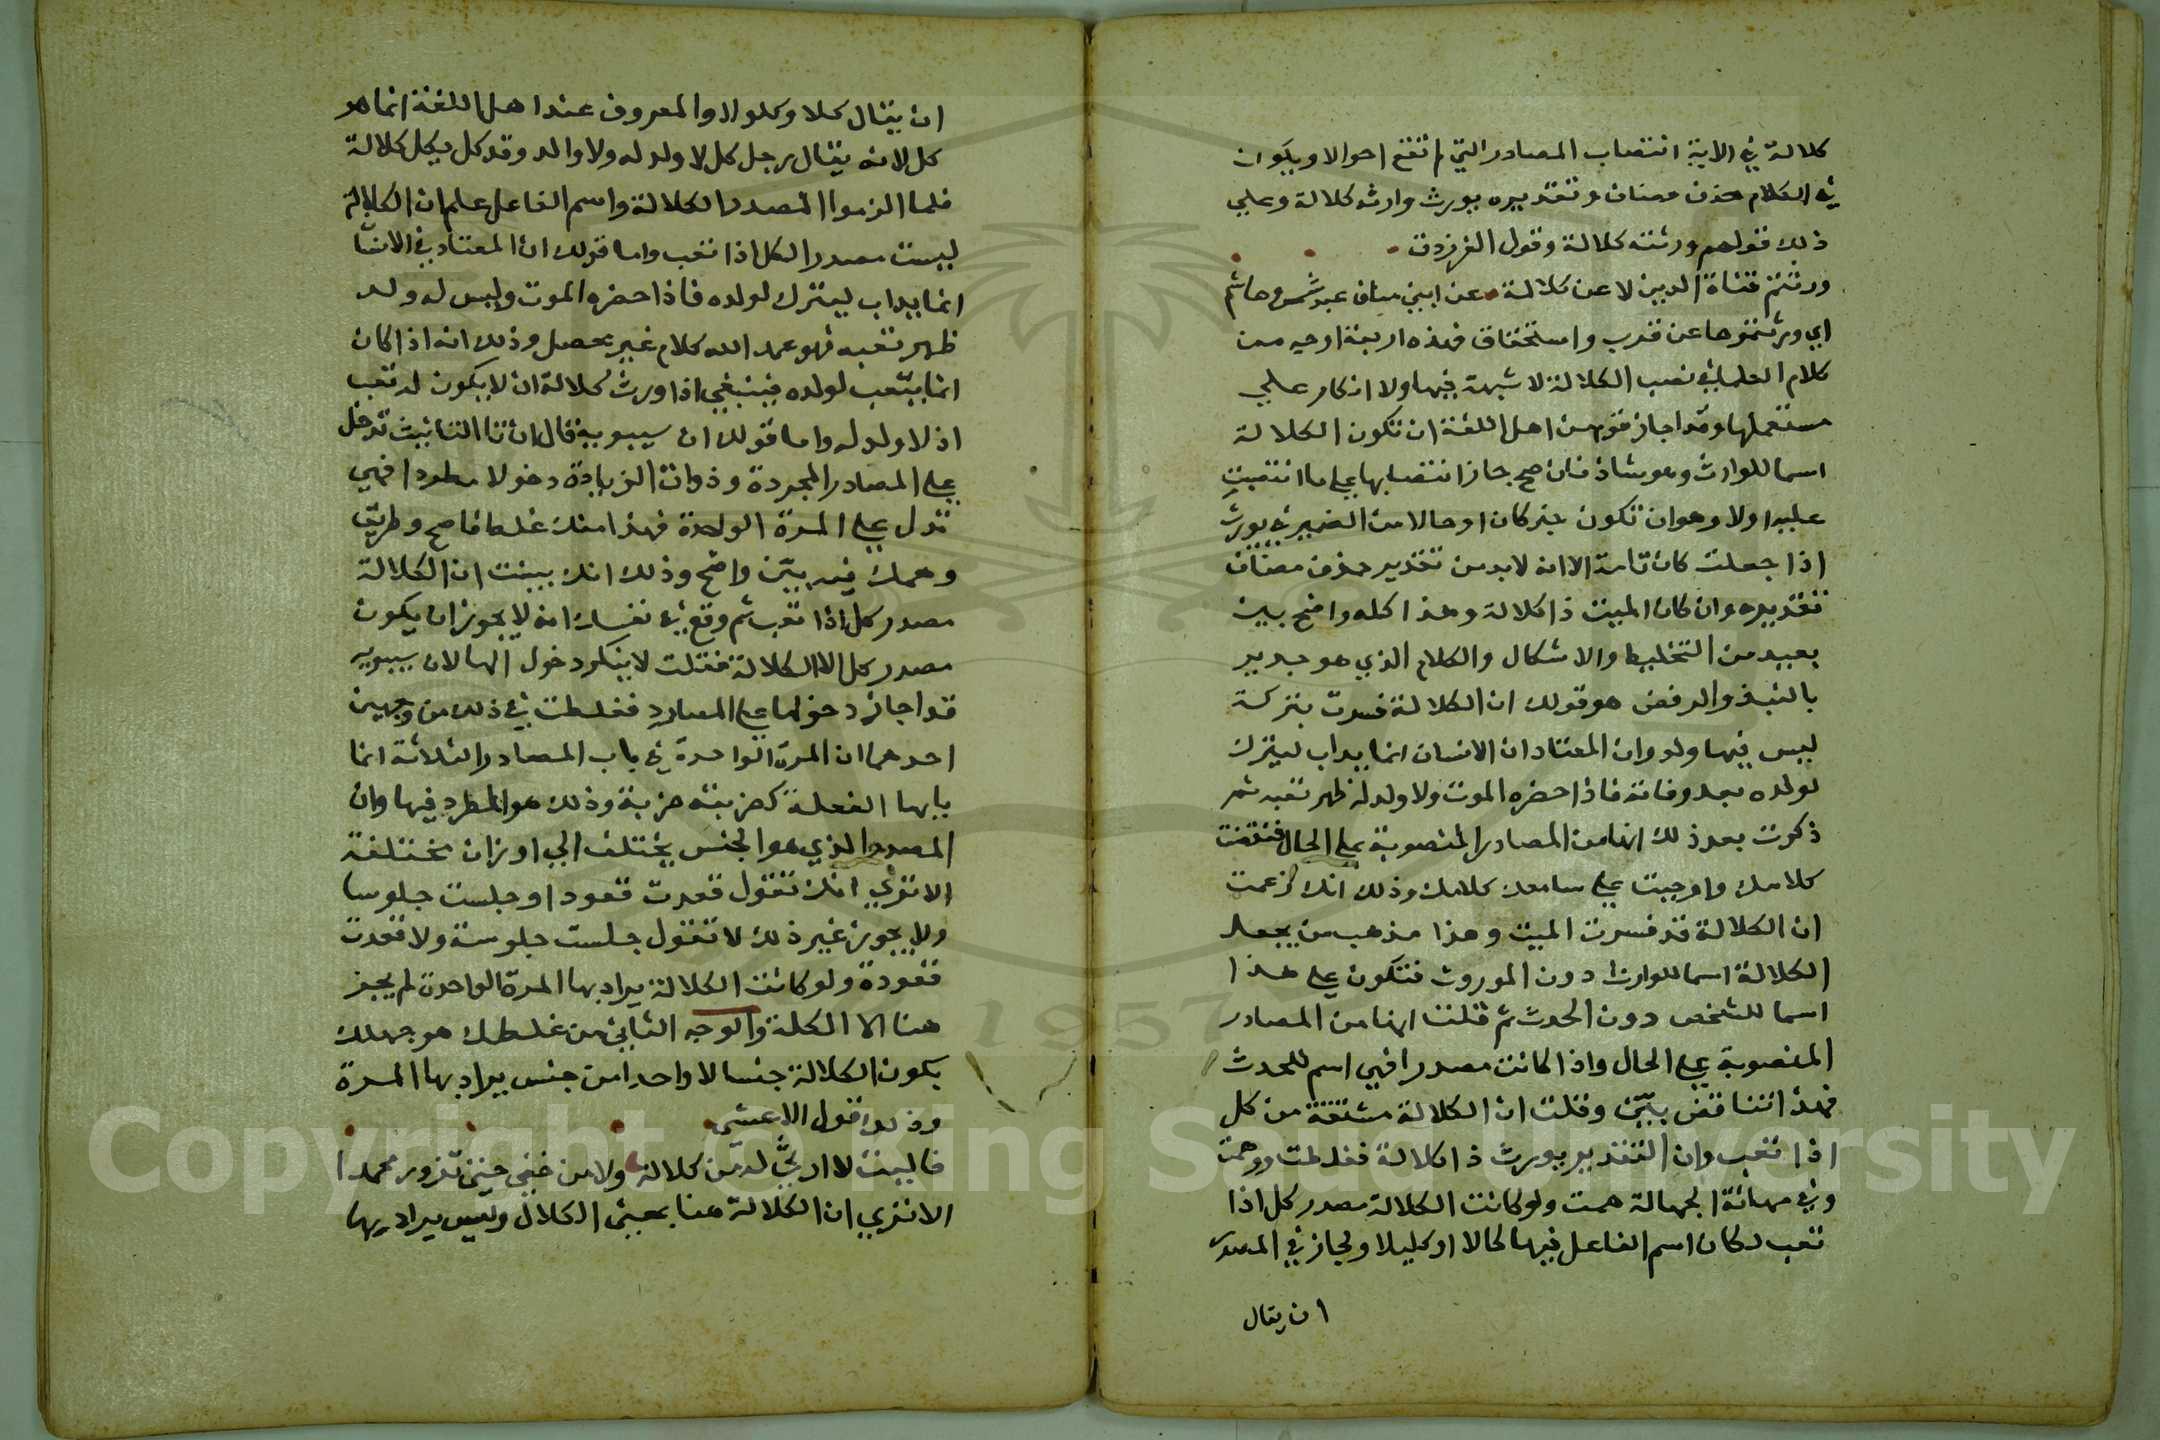 كلالة في الاية انتصاب المصادر التي تقع احوالا ويكون
في الكلام حذف مضاف وتقديره يورث وارثه كلالة وعلي
ذلك قولهم ورثته كلالة وقول الفرزدق
ورثتم قناة الدين لا عن كلالة عن ابني مناف عبد شمس وهاشم
اي ورثتموها عن قرب واستحقاق فهذه اربعة اوجه من
كلام العلما في نصب الكلالة لا شبهة فيها ولا انكار علي
مستعملها وقد اجاز قوم من اهل اللغة ان تكون الكلالة
اسما للوارث وهو شاذ فان صح جاز انتصابها علي ما انتصبت
عليه اولا وهو ان تكون خبر كان او حالا من الضمير في يورث
اذا جعلت كان تامة الا انه لا بد من تقدير حذف مضاف
تقديره وان كان الميت ذا كلالة وهذا كله واضح بين
بعيد من التخليط والاشكال والكلام الذي هو جدير
بالنبذ والرفض هو قولك ان الكلالة فسرت بتركة
ليس فيها ولد وان المعتاد ان الانسان انما يداب ليترك
لولده بعد وفاته فاذا حضره الموت ولا ولد له ظهر تعبه ثم
ذكرت بعد ذلك انها من المصادر المنصوبة علي الحال فنقضت
كلامك واوجبت علي سامعك كلامك وذلك انك زعمت
ان الكلالة قد فسرت الميت وهذا مذهب من يجعل
الكلالة اسما للوارث دون الموروث فتكون علي هذا
اسما للشخص دون الحدث ثم قلت انها من المصادر
المنصوبة علي الحال واذا كانت مصدرا فهي اسم للحدث
فهذا تناقض بين وقلت ان الكلالة مشتقة من كل
اذا تعب وان التقدير يورث ذا كلالة فغلطت ووهمت
وفي مهانة الجهالة همت ولو كانت الكلالة مصدر كل اذا
تعب لكان اسم الفاعل فيها كالا او كليلا ولجاز في المصدر
ان يقال
ان يقال كلا وكلولا والمعروف عند اهل اللغة انما هو
كل لانه يقال رجل كل لا ولد له ولا والد وقد كل يكل كلالة
فلما الزموا المصدر الكلالة واسم الفاعل علم ان الكلالة
ليست مصدر الكل اذا تعب واما قولك ان المعتاد في الانسان
انما يداب ليترك لولده فاذا حضره الموت وليس له ولد
ظهر تعبه فهو عمد الله كلام غير محصل وذلك انه اذا كان
انما يتعب لولده فينبغي اذا ورث كلالة ان لا يكون له تعب
اذ لا ولد له واما قولك ان سيبويه قال ان تا التانيث تدخل
علي المصادر المجردة وذوات الزيادة دخولا مطردا فهي
تدل علي المرة الواحدة فهذا منك غلط فاضح وطريق
وهمك فيه بين واضح وذلك انك بينت ان الكلالة
مصدر كل اذا تعب ثم وقع في نفسك انه لا يجوز ان يكون
مصدر كل الا الكلالة فقلت لا ينكر دخول الها لان سيبويه
قد اجاز دخولها علي المصادر فغلطت في ذلك من وجهين
احدهما ان المرة الواحدة في باب المصادر الثلاثة انما
بابها الفعلة كضربته ضربة وذلك هو المطرد فيها وان
المصدر الذي هو الجنس يختلف الي اوزان مختلفة
الا تري انك تقول قعدت قعودا وجلست جلوسا
ولا يجوز غير ذلك لا تقول جلست جلوسة ولا قعدت
قعودة ولو كانت الكلالة يراد بها المرة الواحدة لم يجز
هنا الا الكلة والوجه الثاني من غلطك هو جهلك
بكون الكلالة جنسا لا واحدا من جنس يراد بها المرة
وذلك قول الاعشي
فاليت لا ارثي لها من كلالة ولا من حفي حتي تزور محمدا
الا تري ان الكلالة هنا بمعني الكلال وليس يراد بها